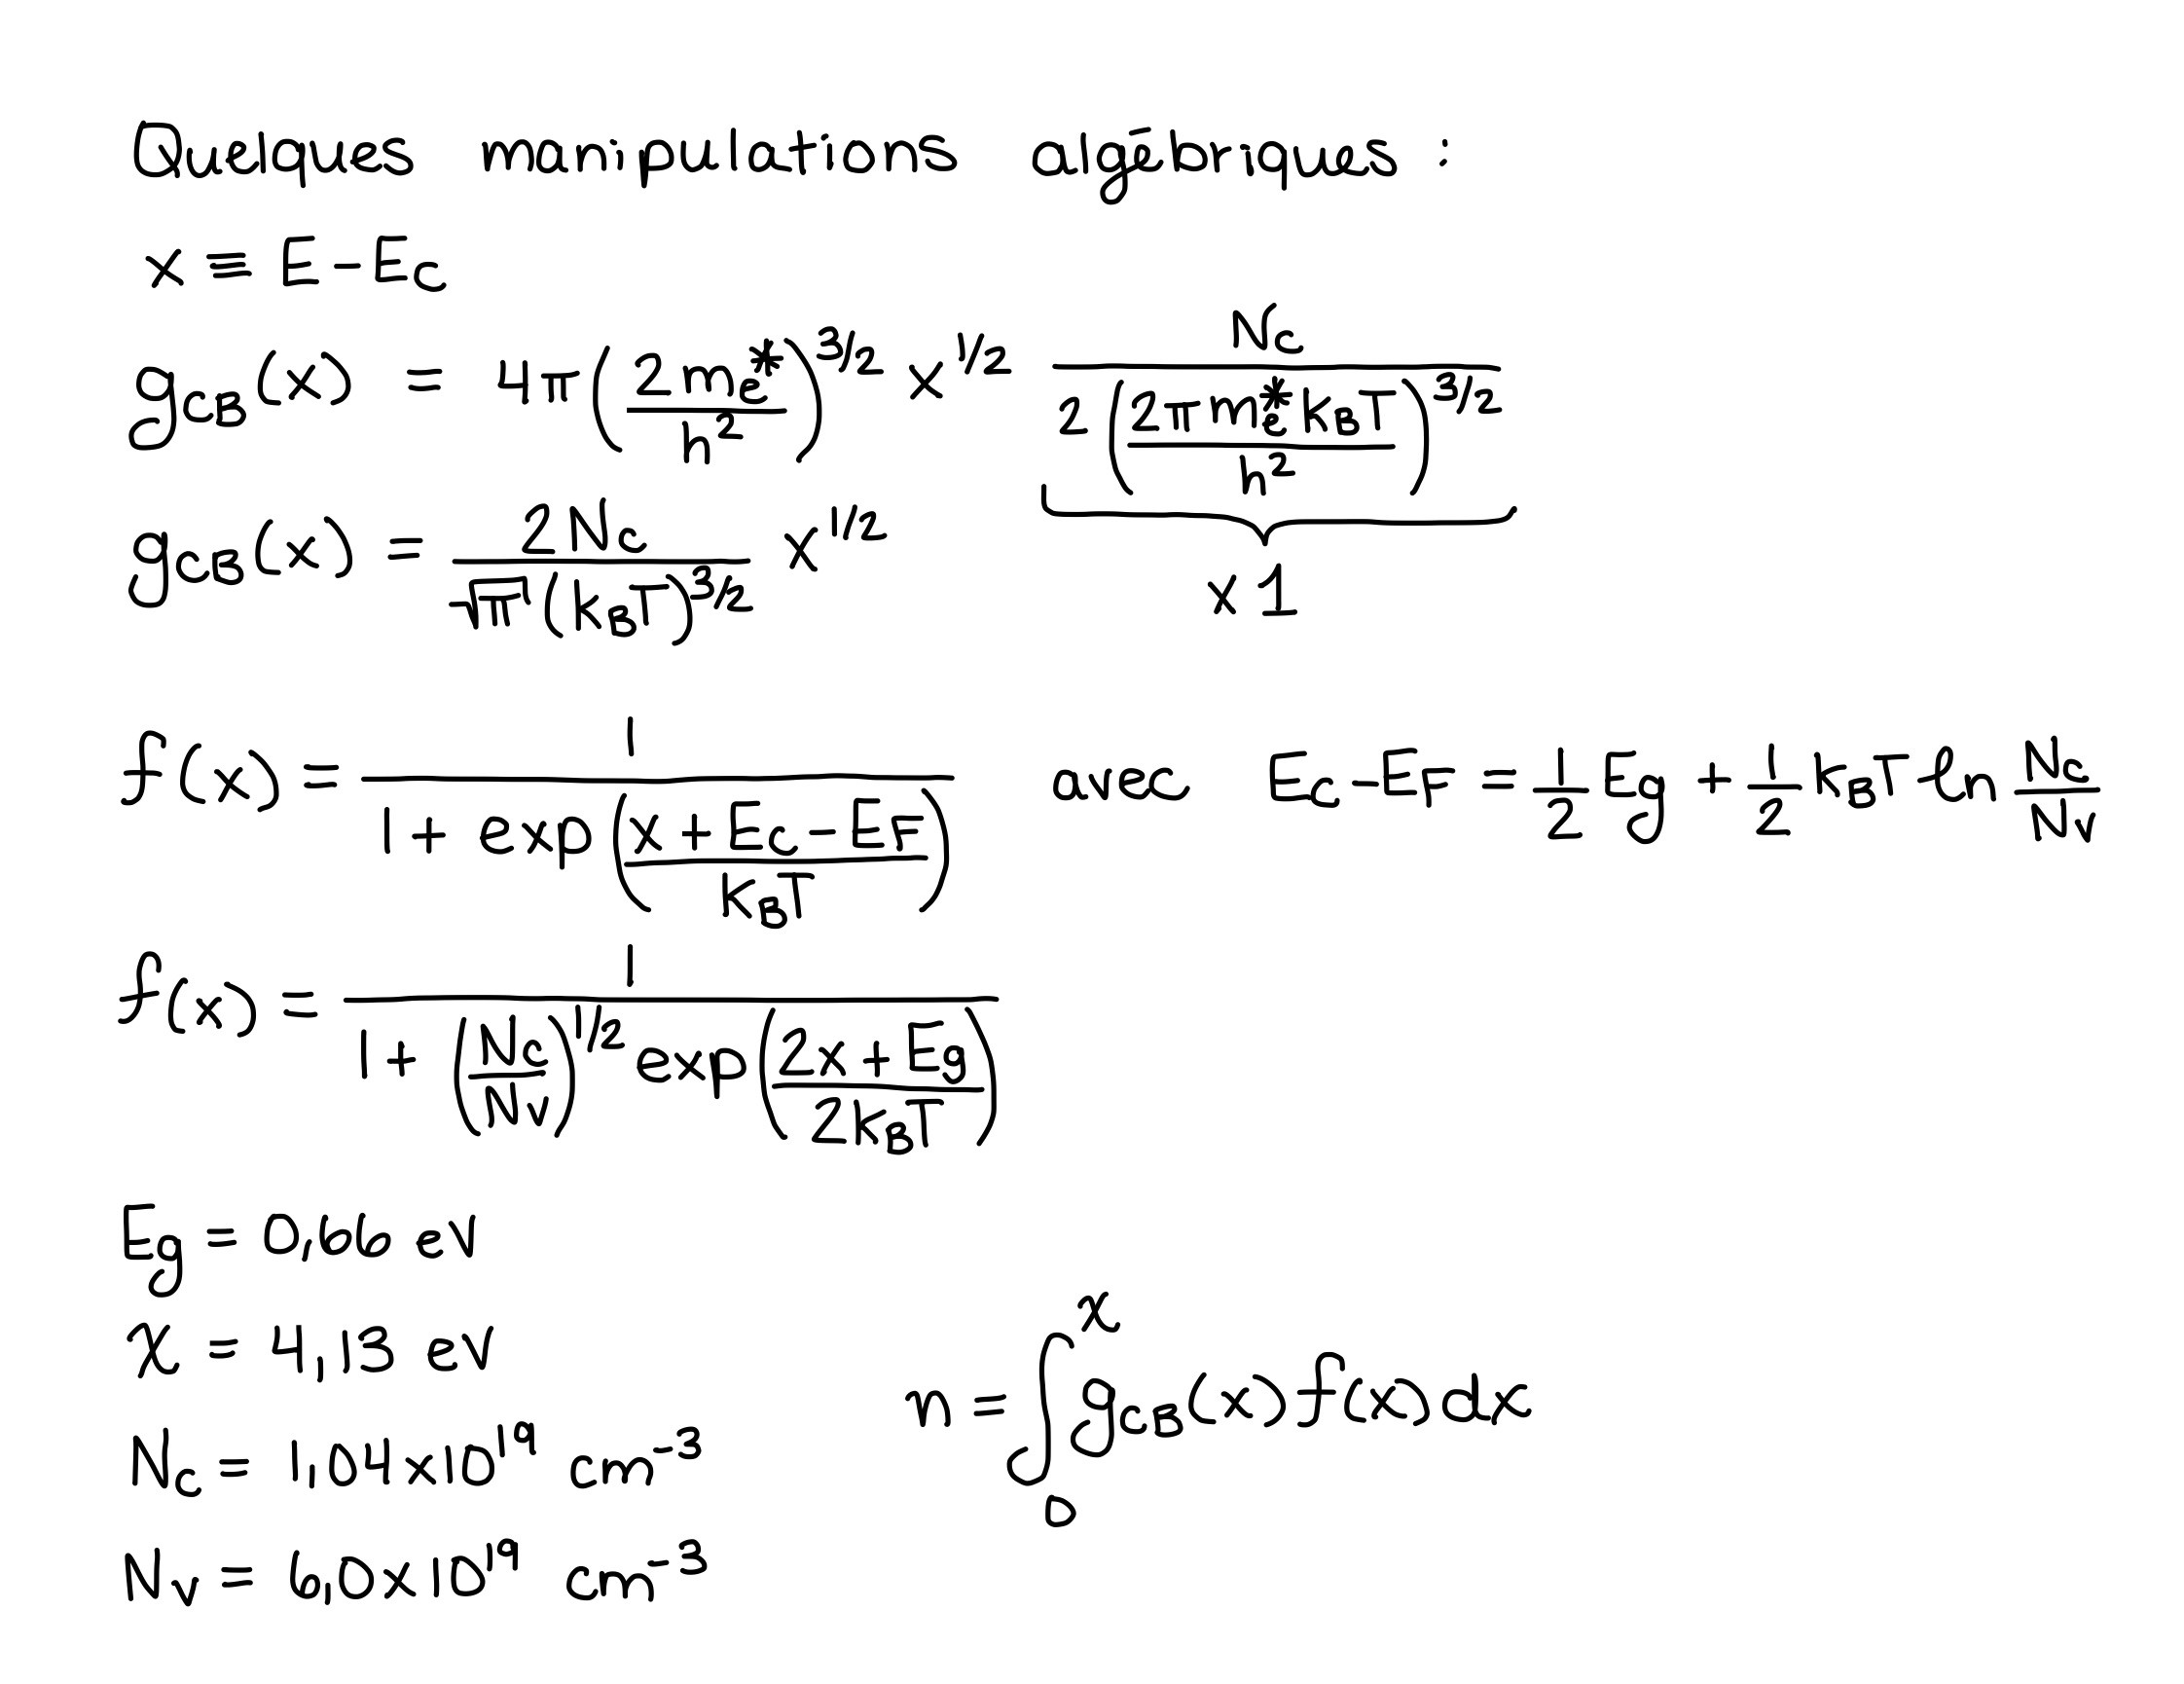 Quelques manipulations algébriques :
x ≡ E - E_C
g_CB(x) = 4π (2 m_e* / h²)^3/2 x^1/2 N_c / (2 (2π m_e* k_B T / h²)^3/2)
x 1
g_CB(x) = 2 N_c / (√π (k_B T)^3/2) x^1/2
f(x) = 1 / (1 + exp((x + E_c - E_F) / k_B T)) avec E_c - E_F = 1/2 E_g + 1/2 k_B T ln N_c/N_v
f(x) = 1 / (1 + (N_c/N_v)^1/2 exp((2x + E_g) / 2k_B T))
E_g = 0,66 eV
χ = 4,13 eV
n = ∫_0^χ g_CB(x) f(x) dx
N_c = 1,04 x 10^19 cm^-3
N_v = 6,0 x 10^19 cm^-3